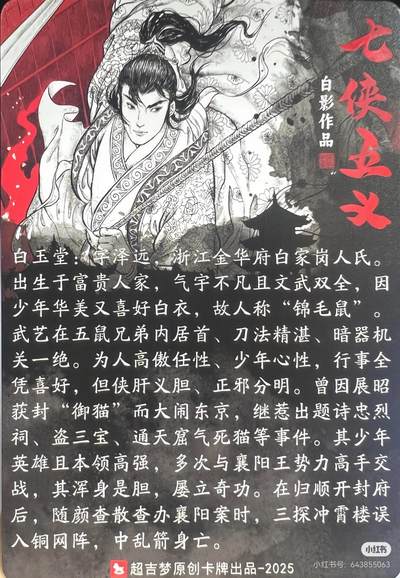 七侠五义
白影作品
白玉堂：字泽远，浙江金华府白家岗人氏。
出生于富贵人家，气宇不凡且文武双全，因
少年华美又喜好白衣，故人称“锦毛鼠”。
武艺在五鼠兄弟内居首、刀法精湛、暗器机
关一绝。为人高傲任性、少年心性，行事全
凭喜好，但侠肝义胆、正邪分明。曾因展昭
获封“御猫”而大闹东京，继惹出题诗忠烈
祠、盗三宝、通天窟气死猫等事件。其少年
英雄且本领高强，多次与襄阳王势力高手交
战，其浑身是胆，屡立奇功。在归顺开封府
后，随颜查散查办襄阳案时，三探冲霄楼误
入铜网阵，中乱箭身亡。
超吉梦原创卡牌出品-2025
小红书
小红书号：643855063